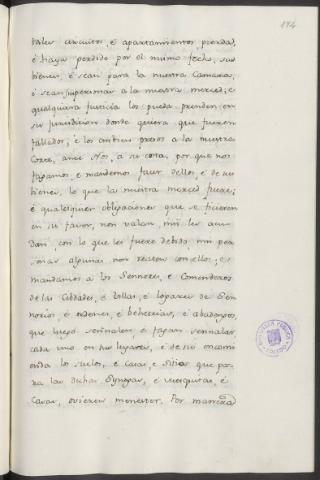 174
tales circuitos, é apartamientos, pierdan,
é haya perdido por el mismo fecho, sus
bienes, é sean para la nuestra Camara;
é sean sus personas á la nuestra merced; é
qualquiera Justicia los pueda prender en
su jurisdicion donde quiera que fueren
fallados, é los embien presos á la nuestra
Corte, ante Nos, á su costa, por que nos
fagamos, é mandemos facer dellos, é de sus
bienes, lo que la nuestra merced fuere;
é qualesquier obligaciones que se ficieren
en su favor, non valan, nin les acu-
dan, con lo que les fuere debido, nin per-
sonas algunas non traten con ellos; é
mandamos á los Sennores, é Comendadores
de las Cibdades, é Villas, é logares de Sen-
norios, é ordenes, é behetrias, é abadengos,
que luego sennalen, é fagan sennalar,
cada uno en sus lugares, é de su encomi-
enda los suelos, é casas, é Sitios que pa-
ra las dichas Synogas, é mezquitas, é
Casas, ovieren menester. Por manera